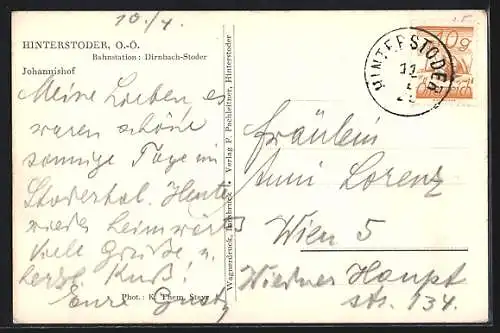 10./4.
HINTERSTODER, O.-Ö.
Bahnstation: Dirnbach-Stoder
Johannishof
Meine Lieben, es
waren schöne
sonnige Tage im
Stodertal. Heute
wieder heimwärts
Viele Grüße, u.
herzl Kuß!
Eure Gusti
Phot.: K. Them, Steyr
Wagnerdruck, Innsbruck Verlag F. Pachleitner, Hinterstoder
HINTERSTODER
10g
Österreich
Fräulein
Anni Lorenz
Wien 5
Wiedner Haupt
str. 134.